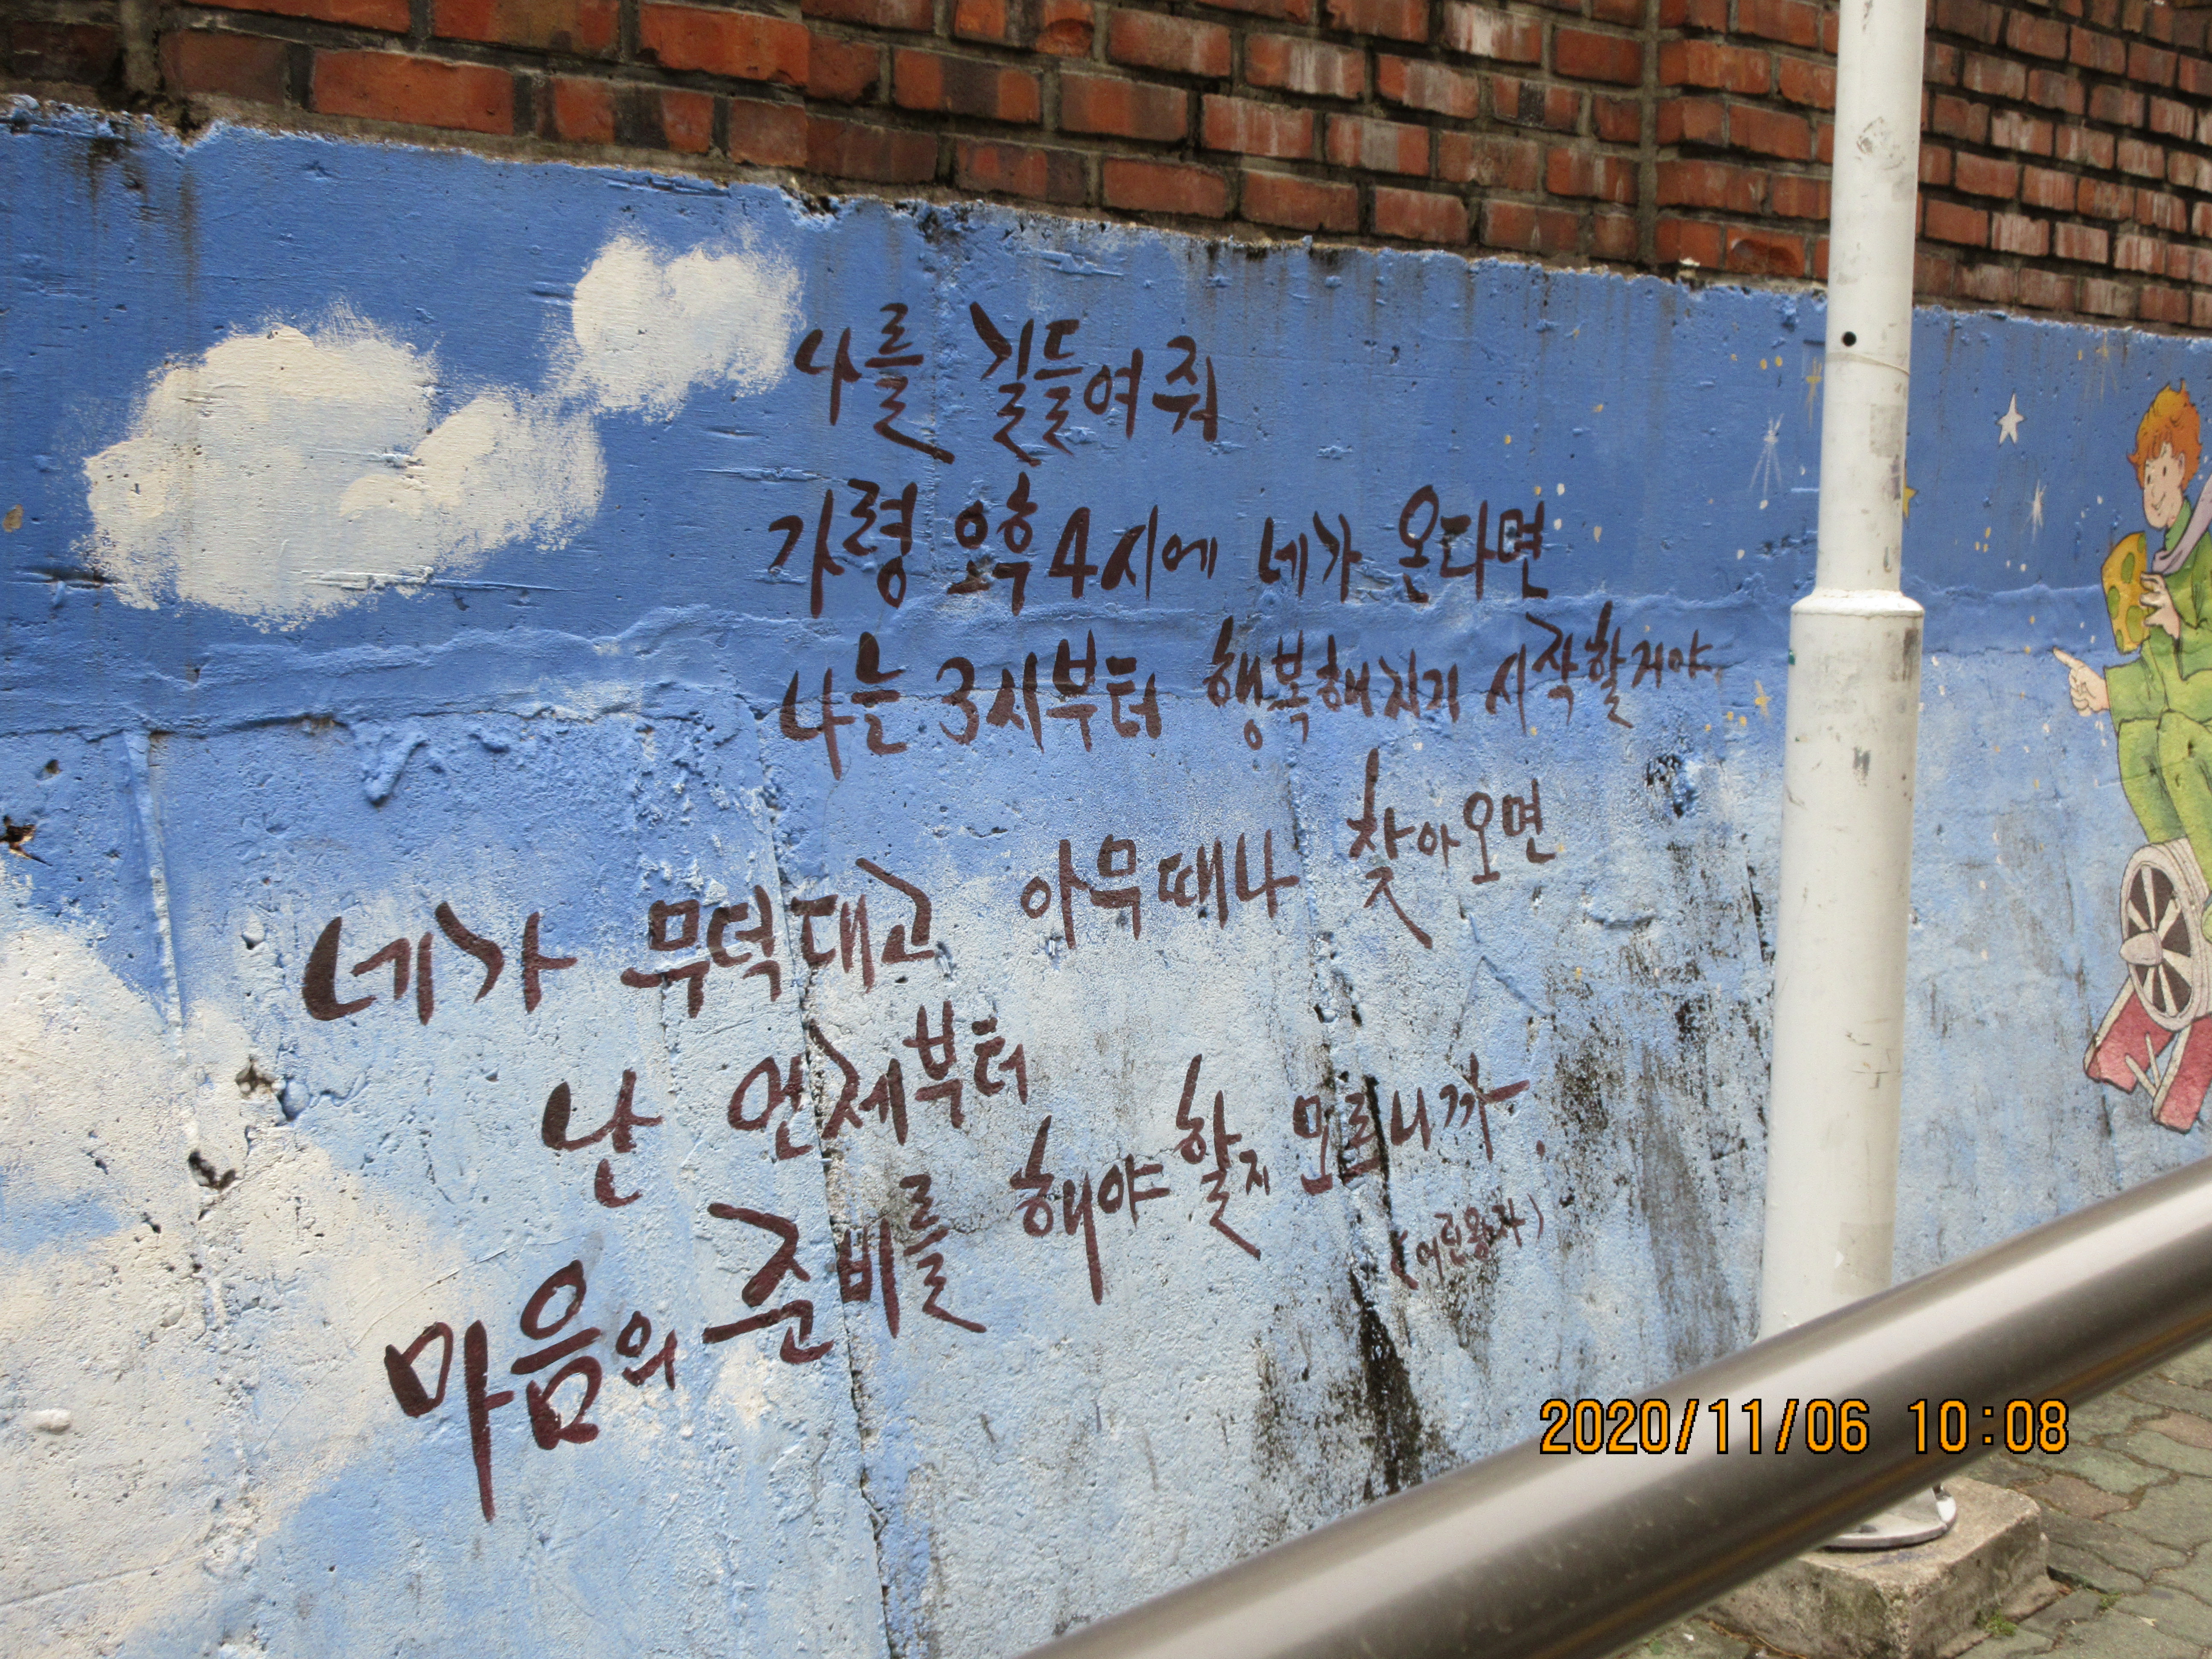 나를 길들여줘
가령 오후 4시에 네가 온다면
나는 3시부터 행복해지기 시작할거야
네가 무덕대고 아무때나 찾아오면
난 언제부터
마음의 준비를 해야 할지 모르니까.
(어린왕자)
2020/11/06 10:08